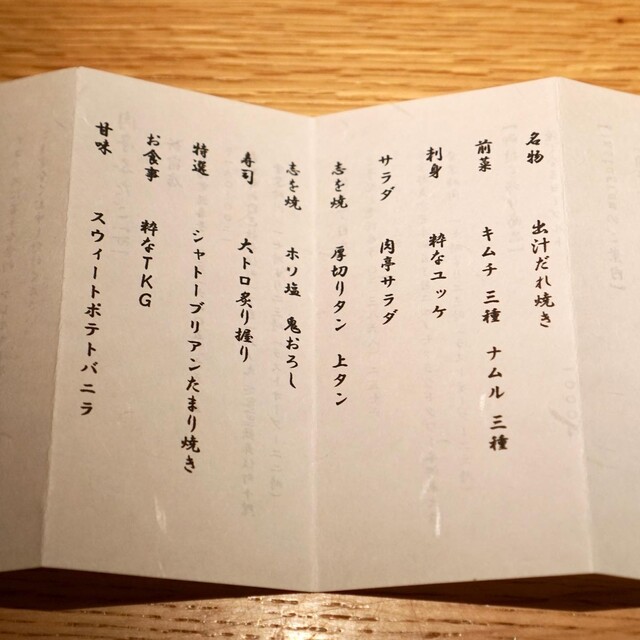 名物 出汁だれ焼き
前菜 キムチ 三種 ナムル 三種
刺身 粋なユッケ
サラダ 肉亭サラダ
志を焼 厚切りタン 上タン
志を焼 ホソ塩 鬼おろし
寿司 大トロ炙り握り
特選 シャトーブリアンたまり焼き
お食事 粋なTKG
甘味 スウィートポテトバニラ